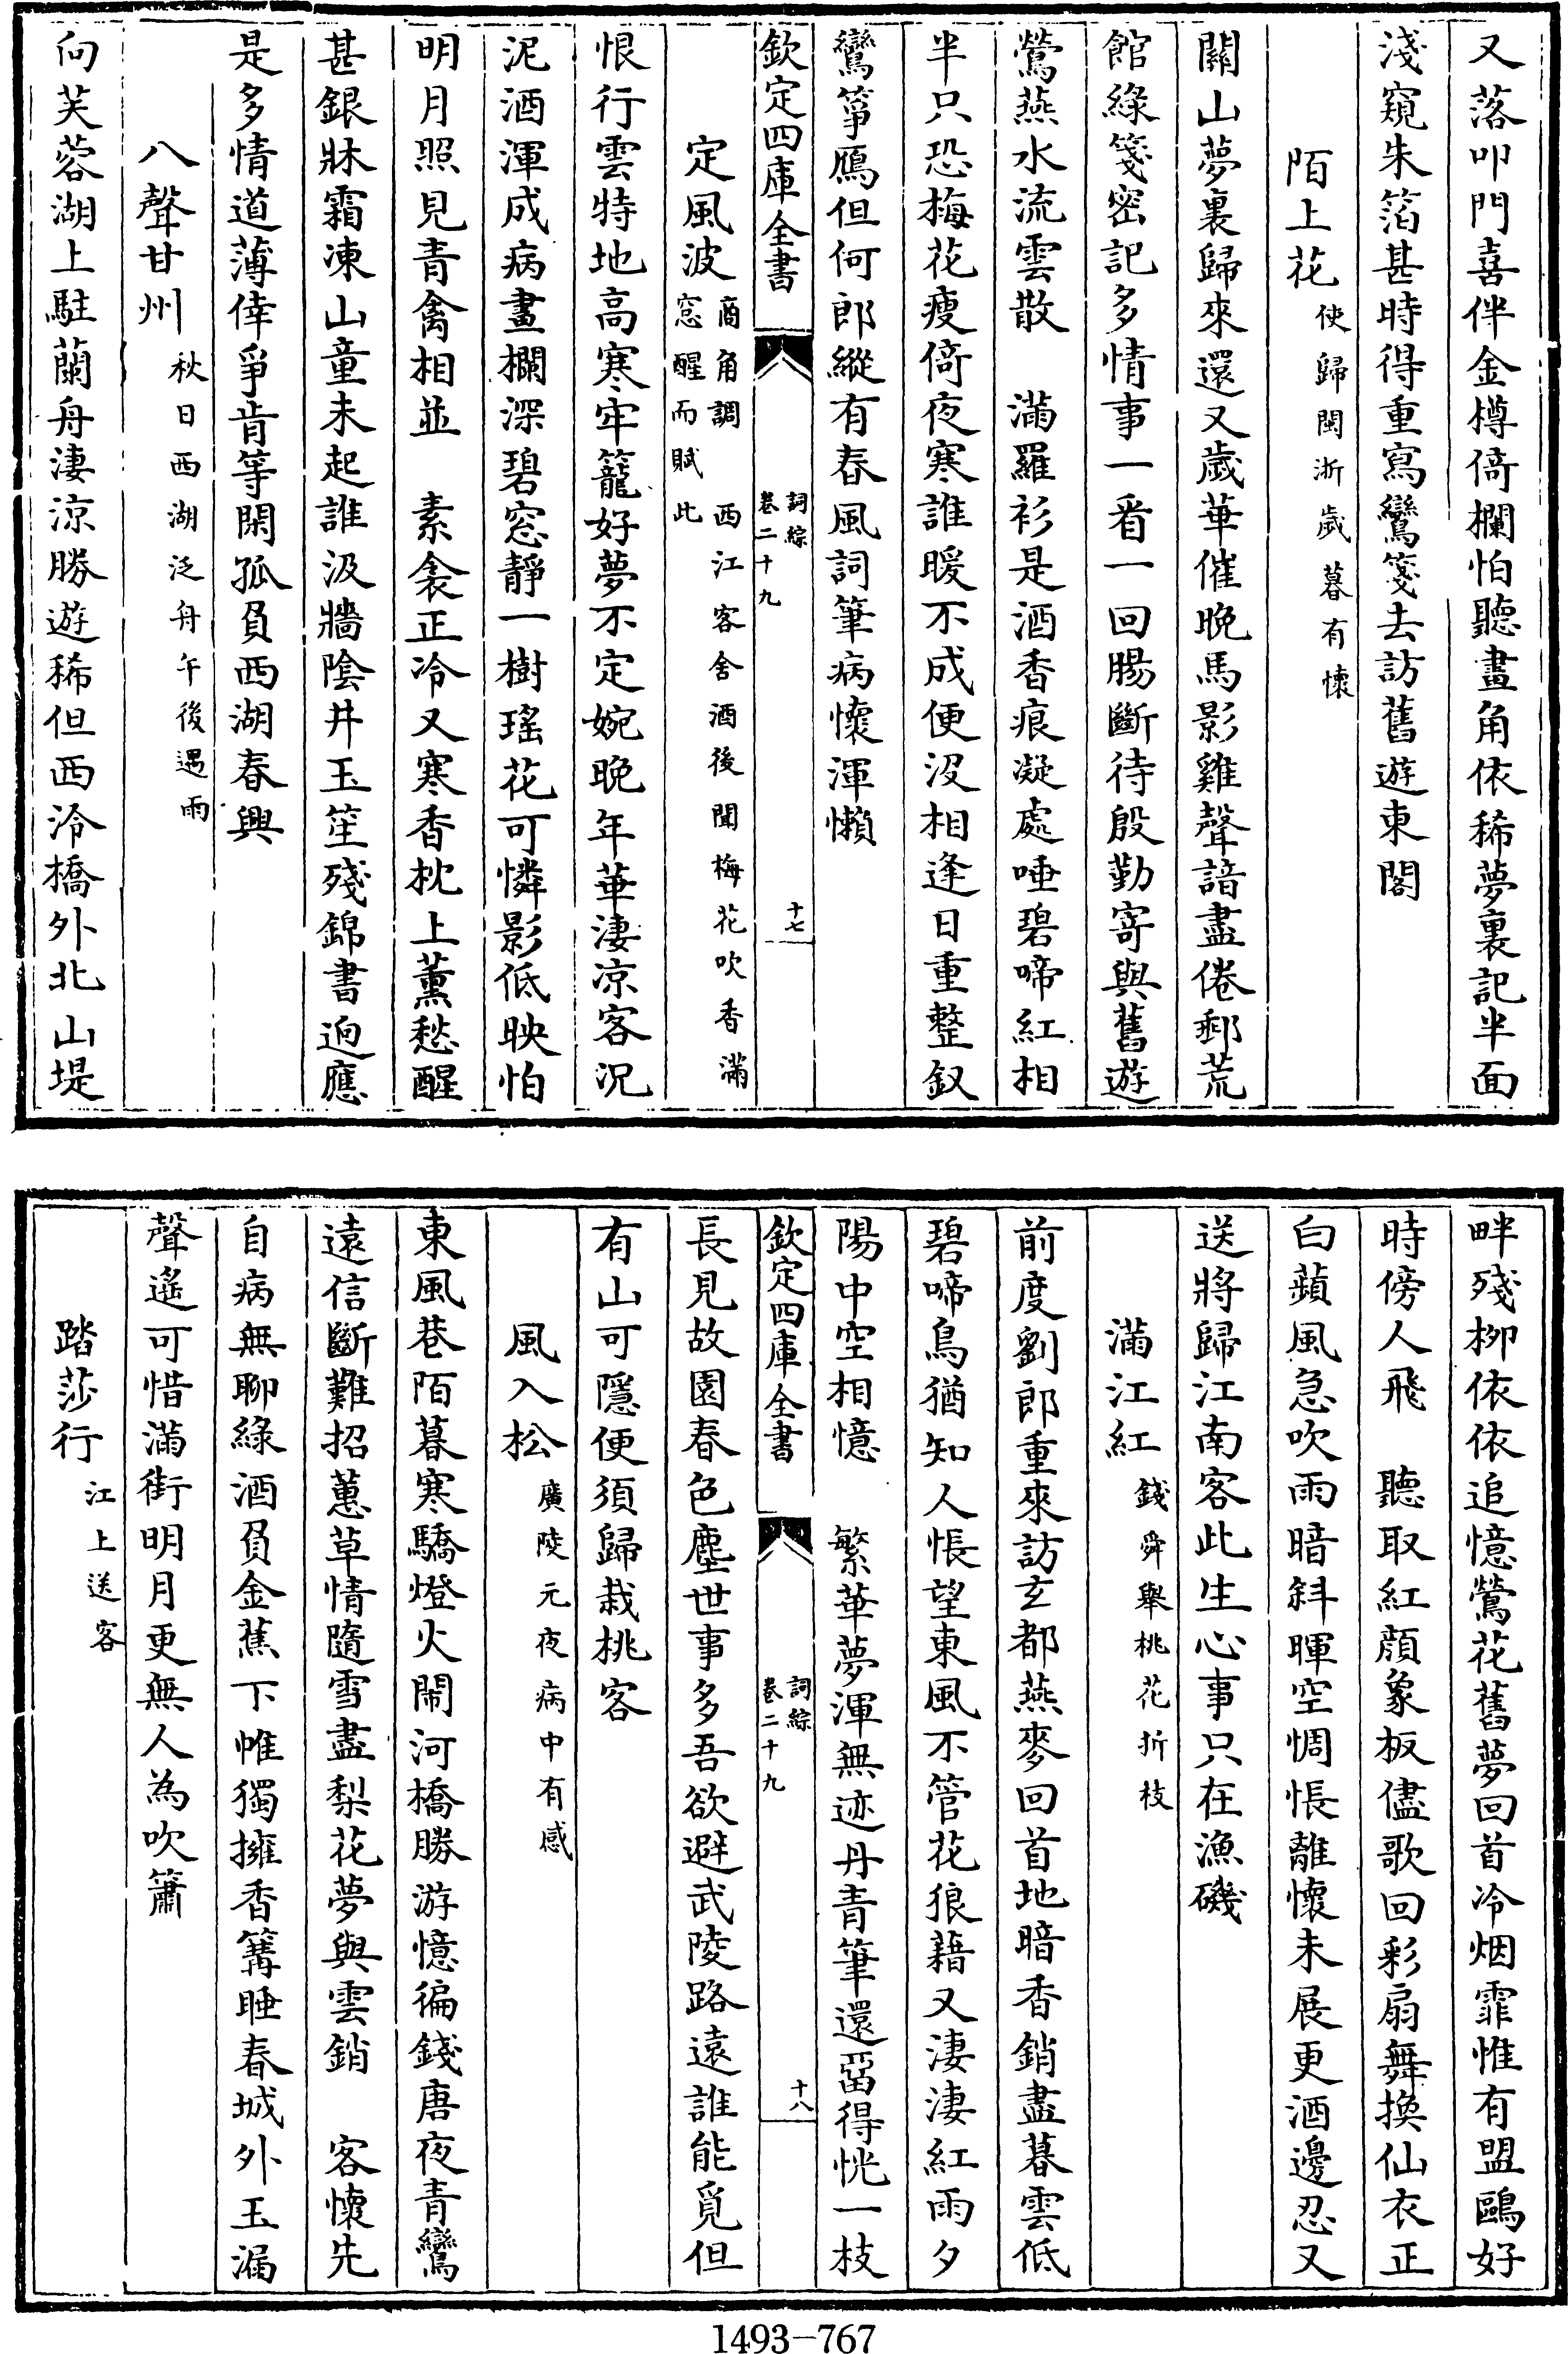 又落叩門喜伴金樽倚欄怕聽畫角依稀夢裏記半面
淺窺朱箔甚時得重寫鸞箋去訪舊遊東閣
陌上花使歸閩浙歲暮有懷
關山夢裏歸來還又歲華催晚馬影雞聲諳盡倦郵荒
館綠箋密記多情事一看一回腸斷待殷勤寄與舊遊
鶯燕水流雲散　滿羅衫是酒香痕凝處唾碧啼紅相
半只恐梅花瘦倚夜寒誰暖不成便沒相逢日重整釵
鸞箏鴈但何郎縱有春風詞筆病懷渾懶
欽定四庫全書
詞綜
卷二十九
十七
定風波商角調　西江客舍酒後聞梅花吹香滿
窓醒而賦此
恨行雲特地高寒牢籠好夢不定婉晚年華淒凉客況
泥酒渾成病畫欄深碧窓靜一樹瑤花可憐影低映怕
明月照見青禽相並　素衾正冷又寒香枕上薰愁醒
甚銀牀霜凍山童未起誰汲牆陰井玉笙殘錦書迥應
是多情道薄倖爭肯等閑孤負西湖春興
八聲甘州秋日西湖泛舟午後遇雨
向芙蓉湖上駐蘭舟淒涼勝遊稀但西泠橋外北山堤
畔殘柳依依追憶鶯花舊夢回首冷烟霏惟有盟鷗好
時傍人飛　聽取紅顏象板儘歌回彩扇舞換仙衣正
白蘋風急吹雨暗斜暉空惆悵離懷未展更酒邊忍又
送將歸江南客此生心事只在漁磯
滿江紅錢舜舉桃花折枝
前度劉郎重來訪玄都燕麥回首地暗香銷盡暮雲低
碧啼鳥猶知人悵望東風不管花狼藉又淒淒紅雨夕
陽中空相憶　繁華夢渾無迹丹青筆還留得恍一枝
欽定四庫全書
詞綜
卷二十九
十八
長見故園春色塵世事多吾欲避武陵路遠誰能覓但
有山可隱便須歸栽桃客
風入松廣陵元夜病中有感
東風巷陌暮寒驕燈火鬧河橋勝游憶徧錢唐夜青鸞
遠信斷難招蕙草情隨雪盡梨花夢與雲銷　客懷先
自病無聊綠酒負金蕉下帷獨擁香篝睡春城外玉漏
聲遙可惜滿街明月更無人為吹簫
踏莎行江上送客
1493-767